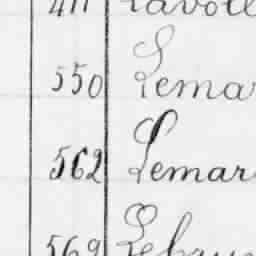 411 Lavoll
550 Lemar
562 Lemar
569 Lebrun